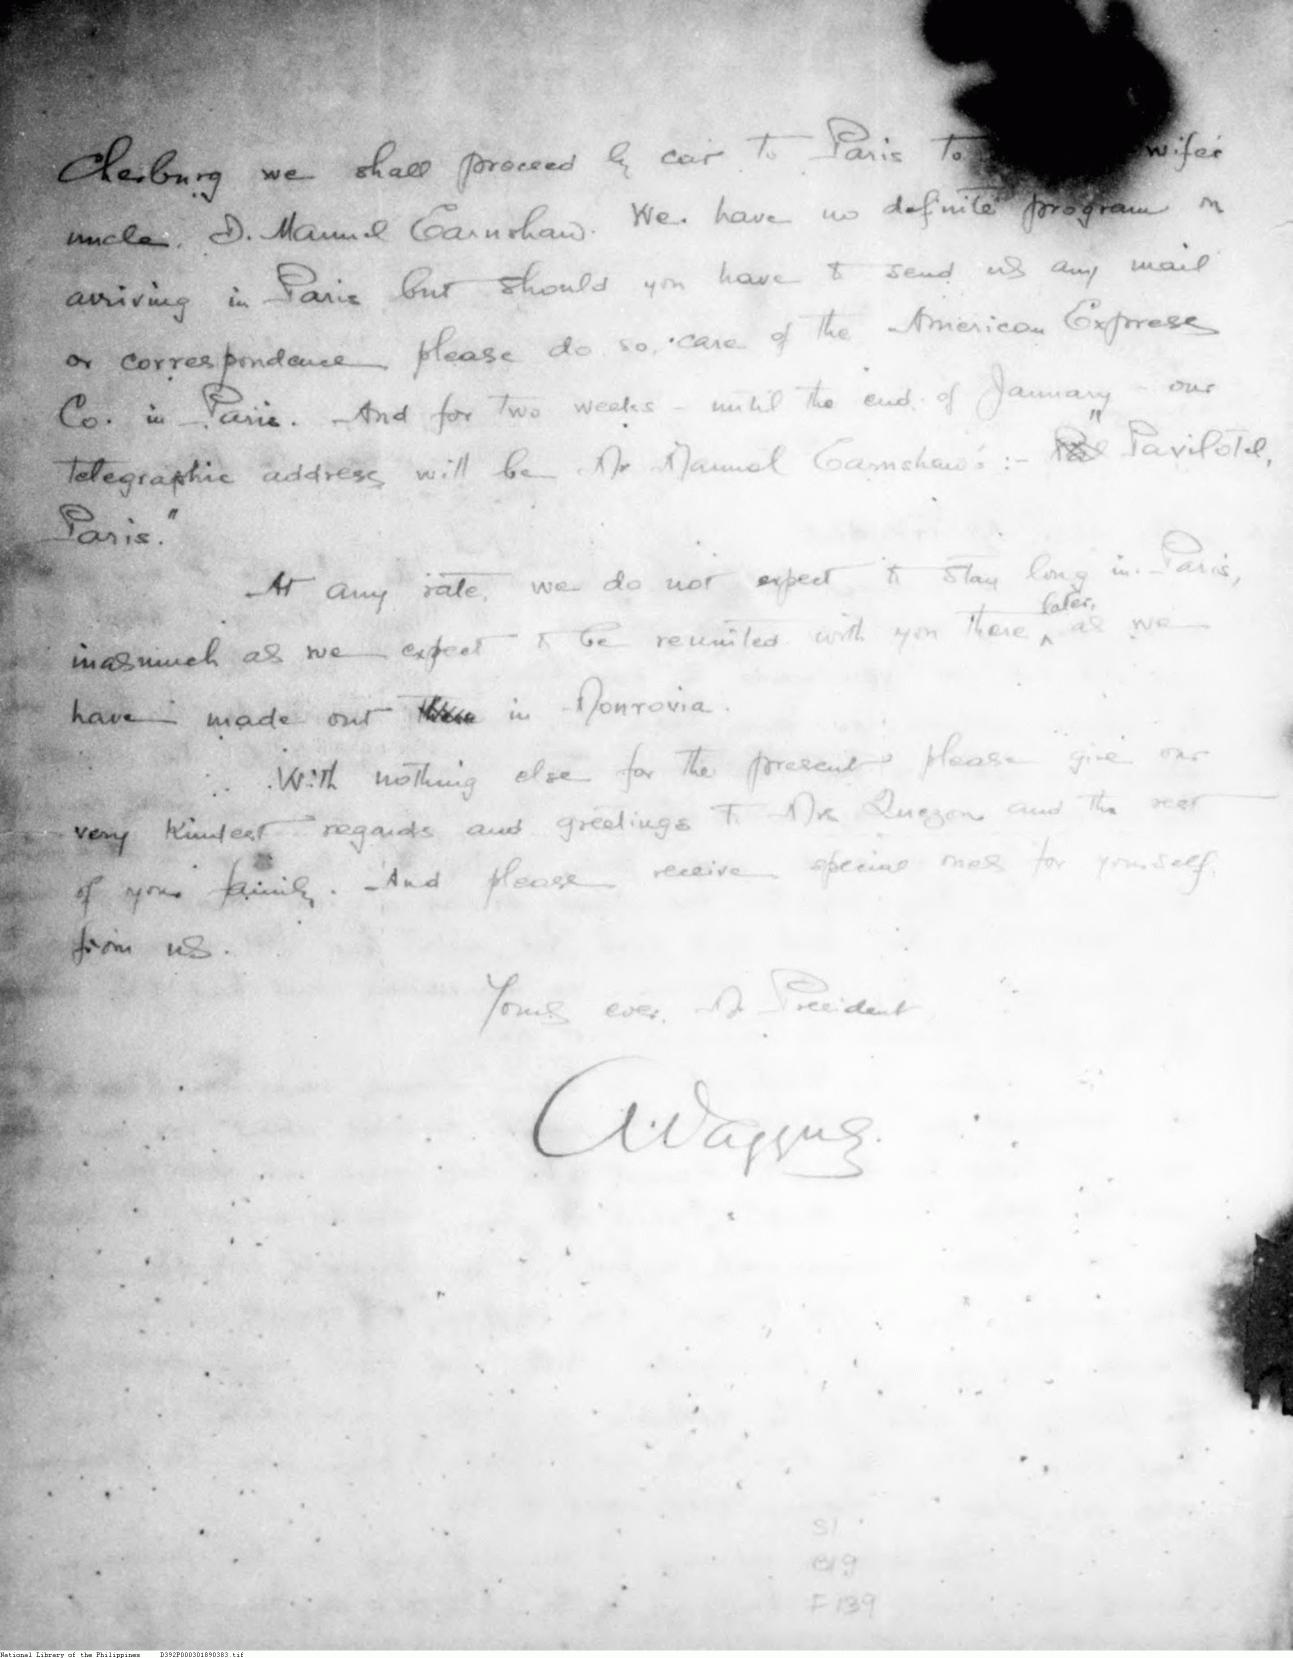 Cherburg we shall proceed by car to Paris to wife's
uncle, D. Manuel Earnshaw. We have no definite program in
arriving in Paris but should you have to send us any mail
or correspondence please do so, care of the American Express
Co. in Paris. And for two weeks - until the end of January - our
telegraphic address will be Mr Manuel Earnshaw's :- " Pavilotel,
Paris."
At any rate, we do not expect to stay long in Paris,
inasmuch as we expect to be reunited with you there later, as we
have made out in Monrovia.
With nothing else for the present please give our
very kindest regards and greetings to Mrs Quezon and the rest
of your family. And please receive special ones for yourself,
from us.
Yours ever, Mr President
S1
B19
F139
National Library of the Philippines D392P000301890383.tif